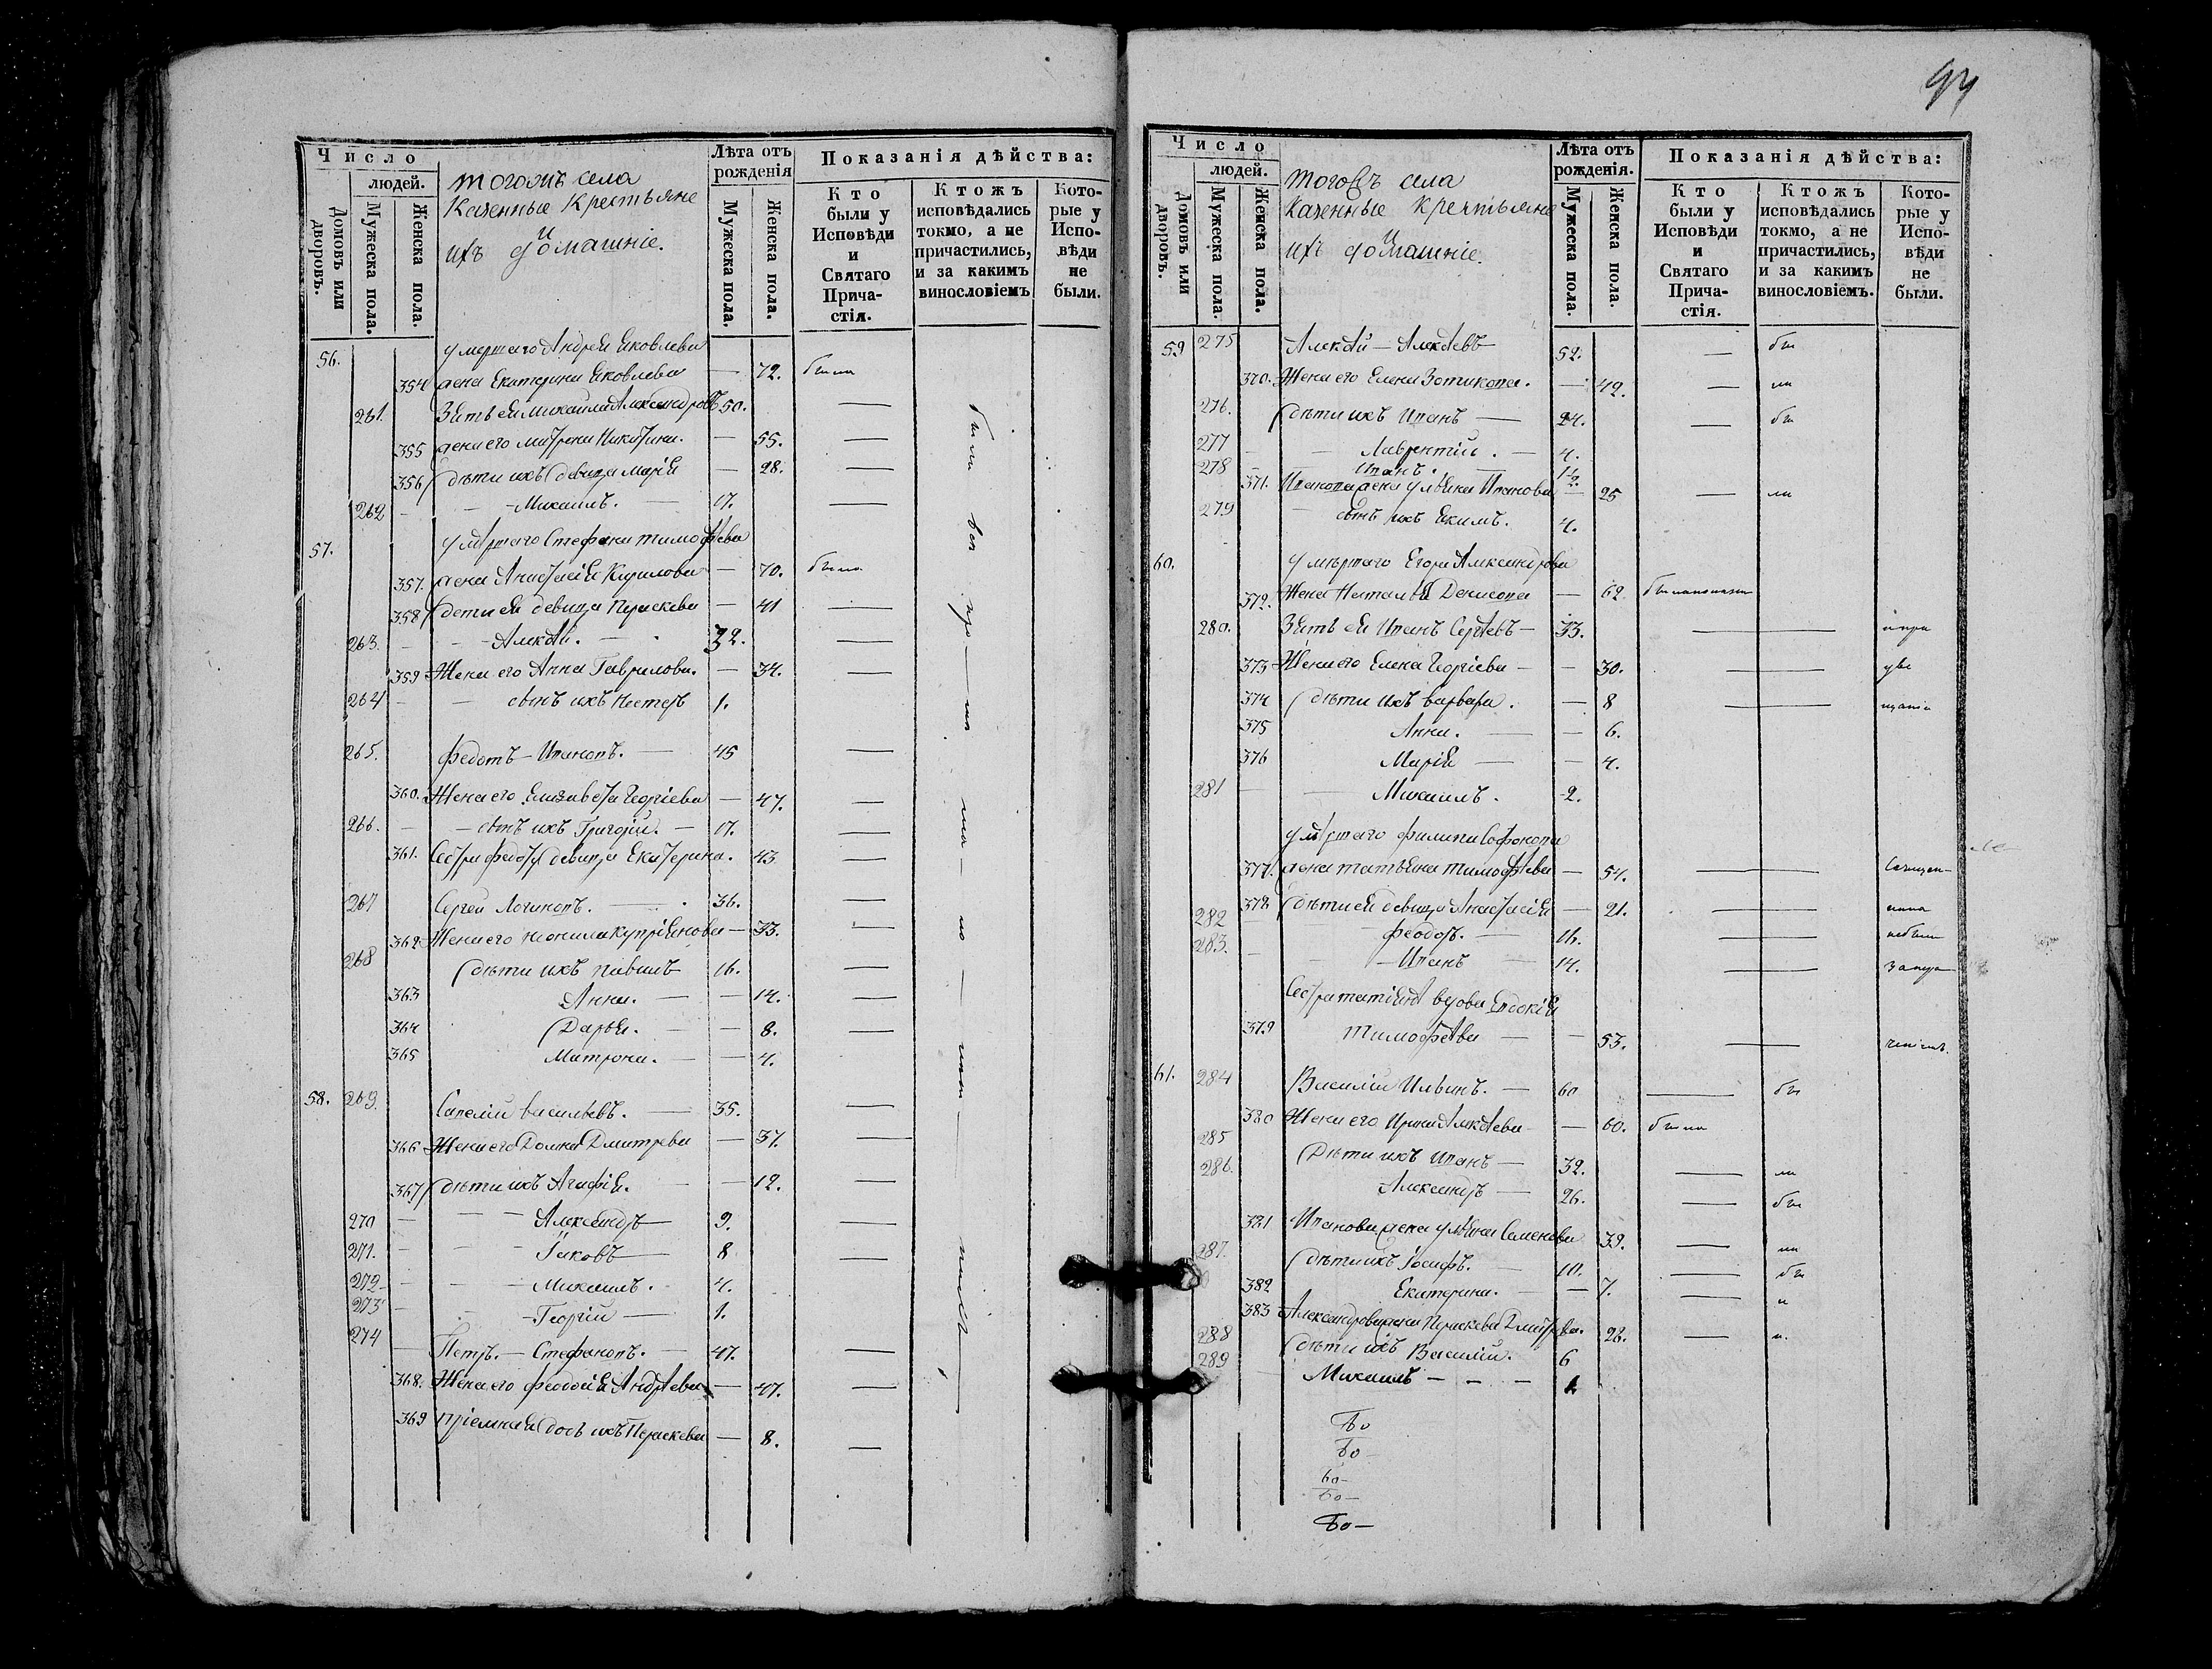 Число
людей.
Домовъ или дворовъ.
Мужеска пола.
Женска пола.
тогожъ села
Казенные Крестьяне
и
ихъ домашніе.
Лѣта отъ рожденія
Мужеска пола.
Женска пола.
Показанія дѣйства:
Кто были у Исповѣди и Святаго Причастія.
Ктожъ исповѣдались токмо, а не причастились, и за какимъ винословіемъ
Которые у Исповѣди не были.
56. умершаго Андрея Яковлева
354 жена Екатерина Яковлева — 72. была
261. Зять ея Михаилъ Александровъ 50. —
355 жена его Матрена Никитина. — 55. —
356 дѣти ихъ девица Марія — 28. —
262 - - Михаилъ. — 17. —
57. умершаго Стефана Тимофѣева
357. жена Анастасія Кирилова — 70. была
358 дети ея девица Параскева — 41 —
263. - - Алексѣй. — 32. —
359 Жена его Анна Гаврилова. — 34. —
264 - — сынъ ихъ Нестеръ 1.
265. Федотъ - Ивановъ. — 45 —
360. Жена его Елизавета Георгіева — 47. —
266. - - сынъ ихъ Григорій. — 17. —
361. Сестра Федота девица Екатерина. 43 —
267 Сергей Логиновъ. — 36. —
362 Жена его Неонила Купріянова — 33. —
268 дѣти ихъ Павелъ 16. —
363 Анна. — — 14. —
364 Дарья. — — 8. —
365 Матрона. — — 4.
58. 269. Савелій Васильевъ. — 35. —
366 Жена его Домна Дмитрева — 37. —
367 дѣти ихъ Агафія. — — 12. —
270 - - - Александръ — 9. —
271. - - - Іаковъ — 8 —
272 - - - Михаилъ. 4.
273 - - - Георгій — 1.
274 — Петръ. — Стефановъ. — 47. —
368. Жена его Феодосія Андрѣева — 47. —
369 пріемная дочь ихъ Параскева — 8. —
94
Число
людей.
Домовъ или дворовъ.
Мужеска пола.
Женска пола.
тогожъ села
Казенные Крестьяне
и
ихъ домашніе.
Лѣта отъ рожденія.
Мужеска пола.
Женска пола.
Показанія дѣйства:
Кто были у Исповѣди и Святаго Причастія.
Ктожъ исповѣдались токмо, а не причастились, и за какимъ винословіемъ.
Которые у Исповѣди не были.
59 275 Алексѣй — Алексѣевъ 52. —
370. Жена его Елена Зотикова. — 42. —
276. дѣти ихъ Иванъ — 24. —
277 - - Лаврентій. — 4.
278 - Иванъ. — 1½.
371. Иванова жена Ульяна Иванова — 25 —
279 - сынъ ихъ Екимъ. 4.
60. умершаго Егора Александрова
372. Жена Наталья Денисова — 62.
280. Зять ея Иванъ Сергѣевъ — 33. — —
373 Жена его Елена Георгіева — — 30. —
374 дѣти ихъ Варвара. — 8 —
375 Анна. — — 6.
376 Марія — — 4.
281 — — Михаилъ. 2.
умершаго Филипа Софонова
377. жена Татьяна Тимофѣева — 54. — —
378 дѣти ея девица Анастасія — 21. — —
282 - Феодоръ. — 16. — —
283. - - Иванъ — 14. —
Сестра Татіяны вдова Евдокія
379 Тимофѣева — — 53. —
61. 284 Василій Ильинъ. — 60 —
380 Жена его Ирина Алексѣева — — 60. была
285 Дѣти ихъ Иванъ — 32. —
286. Александръ — 26. —
381 Иванова жена Ульяна Семенова 39. —
287. дѣти ихъ Іосифъ. — 10. —
382 Екатерина. — — 7. —
383 Александрова жена Параскева Дмитрева. 28. —
288 дѣти ихъ Василій. 6
289 — Михаилъ — - — 1